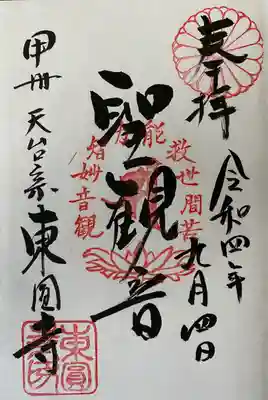 奉拝
令和四年
九月四日
聖観音
甲州 天台宗 東圓寺
観音妙智力
能救世間苦
東圓
寺印